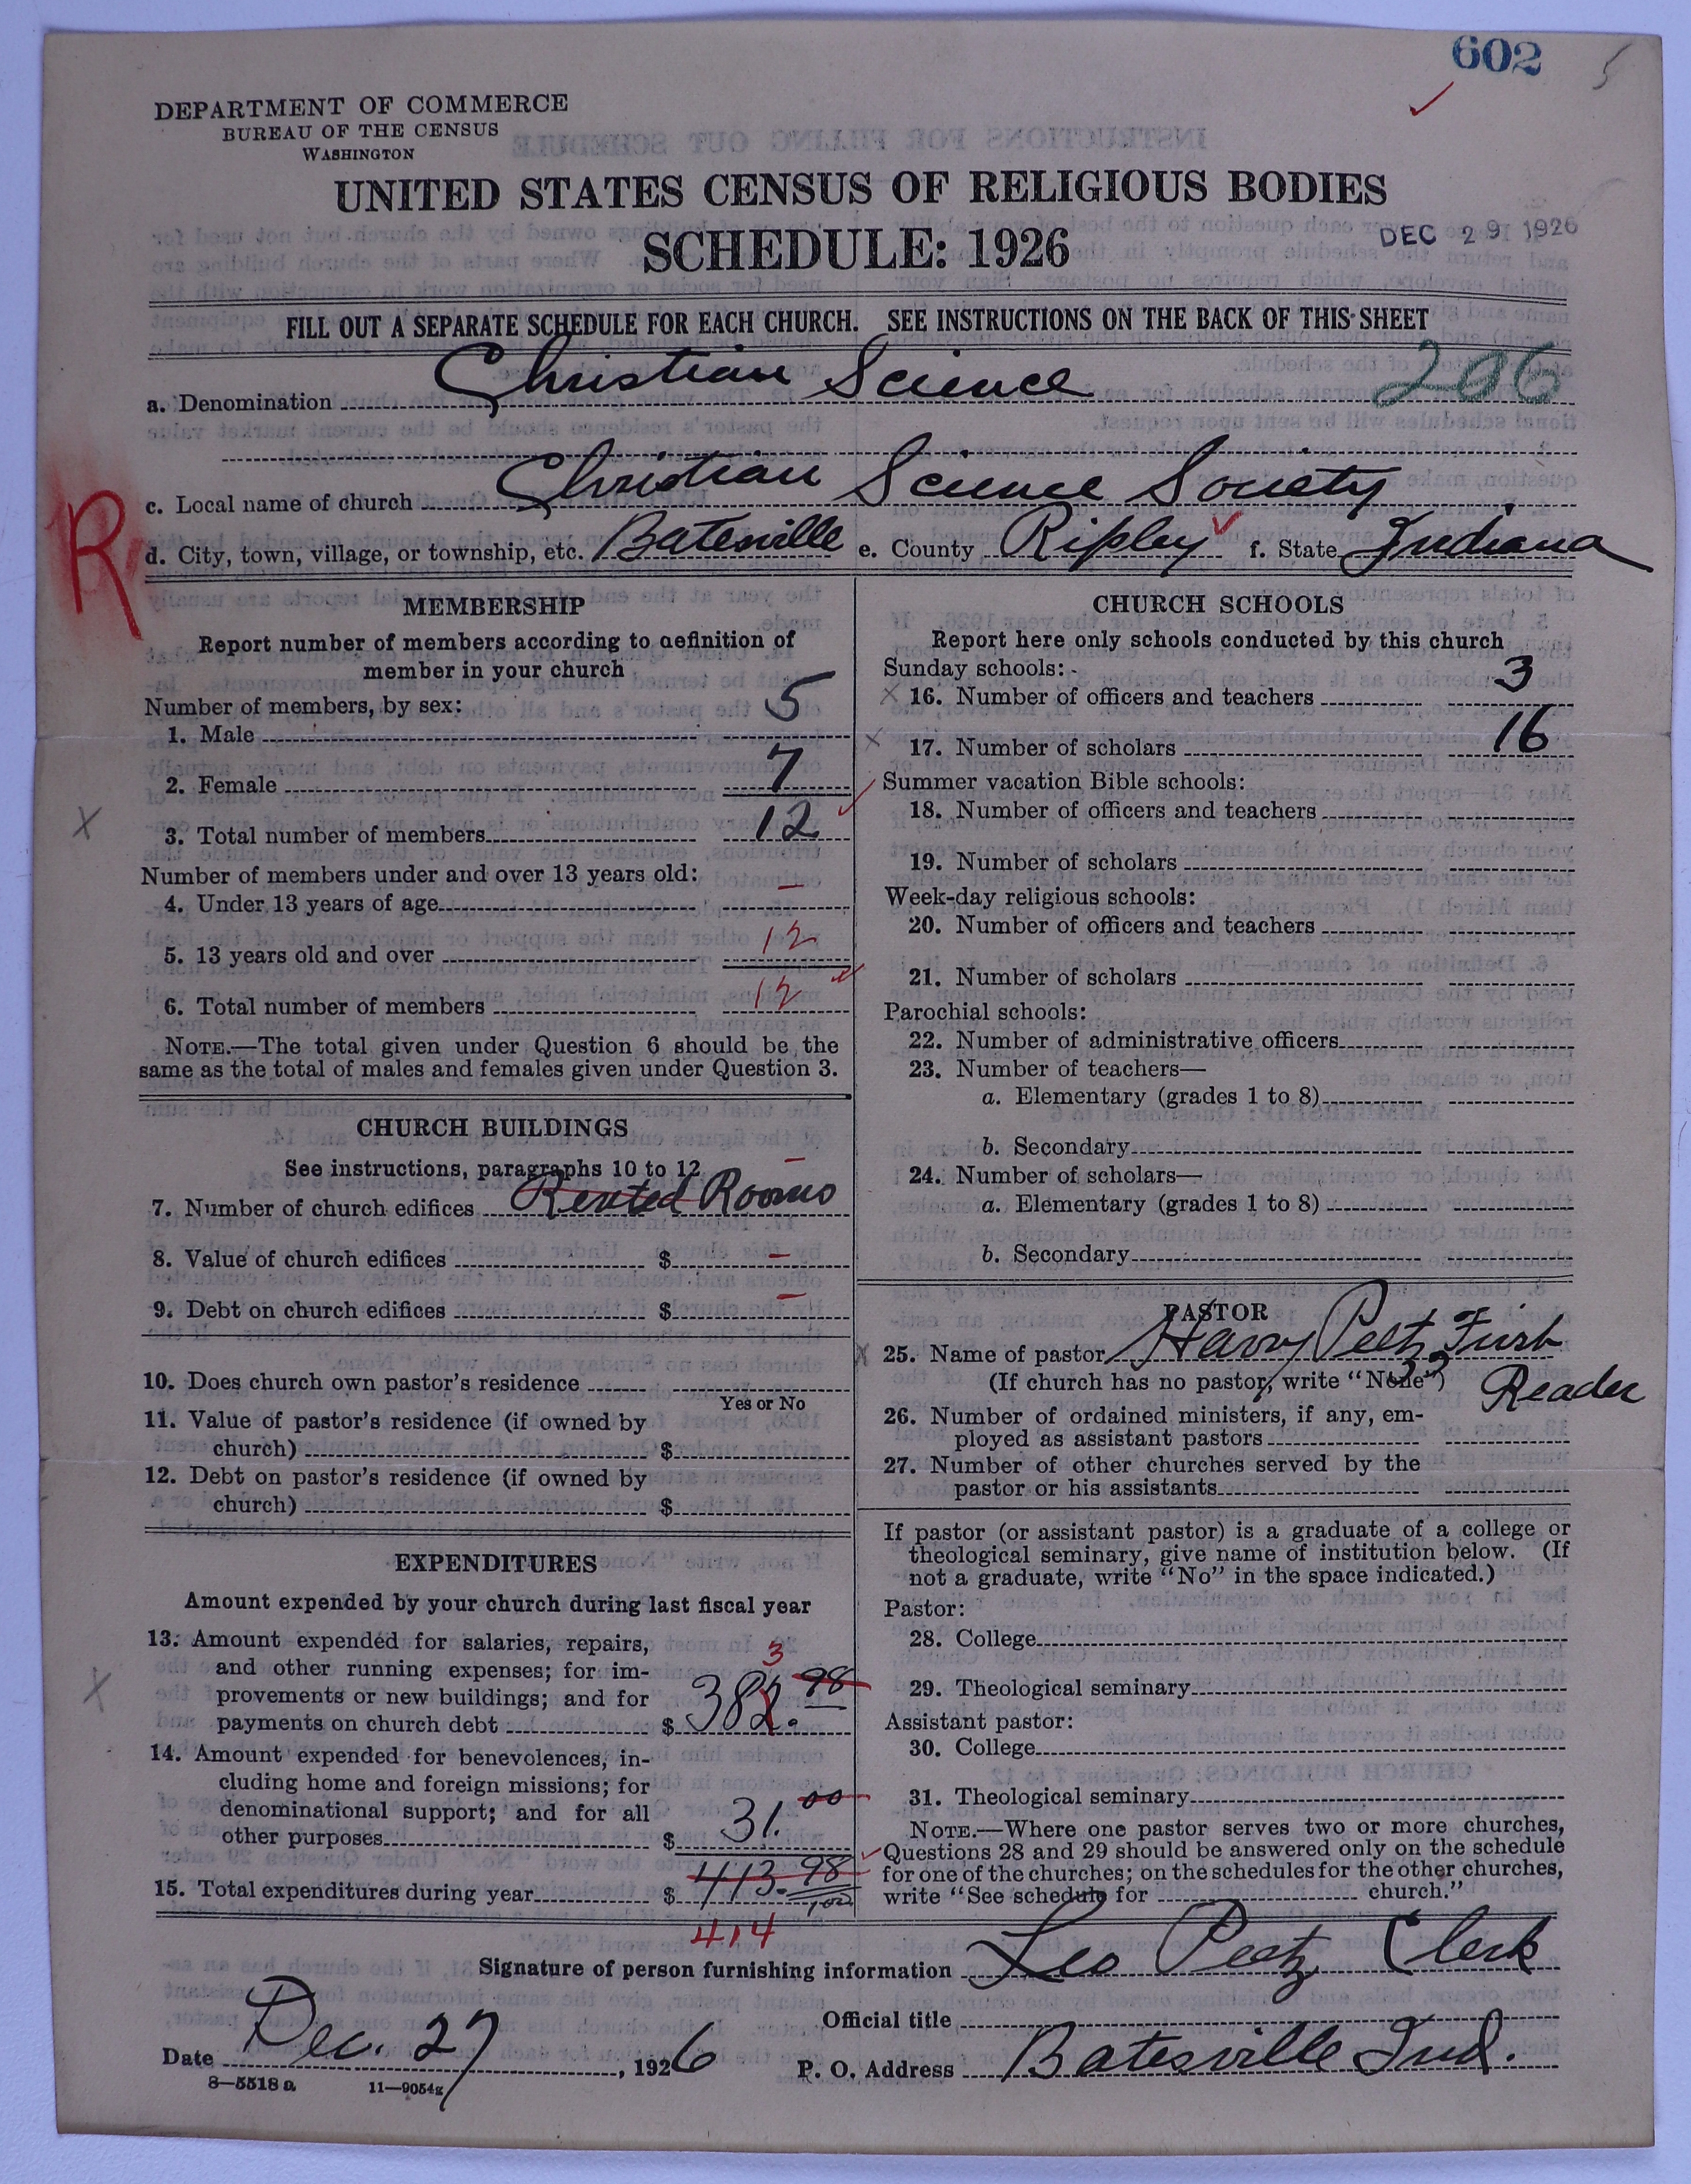 602
DEPARTMENT OF COMMERCE
BUREAU OF THE CENSUS
WASHINGTON
UNITED STATES CENSUS OF RELIGIOUS BODIES
SCHEDULE: 1926
DEC 29 1926
FILL OUT A SEPARATE SCHEDULE FOR EACH CHURCH. SEE INSTRUCTIONS ON THE BACK OF THIS SHEET
a. Denomination Christian Science 206
c. Local name of church Christian Science Society
R
d. City, town, village, or township, etc. Batesville e. County Ripley f. State Indiana
MEMBERSHIP
Report number of members according to definition of
member in your church
Number of members, by sex:
1. Male 5
2. Female 7
3. Total number of members 12
Number of members under and over 13 years old:
4. Under 13 years of age –
5. 13 years old and over 12
6. Total number of members 12
NOTE.—The total given under Question 6 should be the
same as the total of males and females given under Question 3.
CHURCH BUILDINGS
See instructions, paragraphs 10 to 12
7. Number of church edifices Rented Rooms –
8. Value of church edifices $ –
9. Debt on church edifices $ –
10. Does church own pastor's residence
Yes or No
11. Value of pastor's residence (if owned by
church) $
12. Debt on pastor's residence (if owned by
church) $
EXPENDITURES
Amount expended by your church during last fiscal year
13. Amount expended for salaries, repairs,
and other running expenses; for im-
provements or new buildings; and for
payments on church debt $ 382.98
3
14. Amount expended for benevolences, in-
cluding home and foreign missions; for
denominational support; and for all
other purposes $ 31.00
15. Total expenditures during year $ 413.98/100
414
CHURCH SCHOOLS
Report here only schools conducted by this church
Sunday schools:
16. Number of officers and teachers 3
17. Number of scholars 16
Summer vacation Bible schools:
18. Number of officers and teachers
19. Number of scholars
Week-day religious schools:
20. Number of officers and teachers
21. Number of scholars
Parochial schools:
22. Number of administrative officers
23. Number of teachers—
a. Elementary (grades 1 to 8)
b. Secondary
24. Number of scholars—
a. Elementary (grades 1 to 8)
b. Secondary
PASTOR
25. Name of pastor Harry Peetz First
(If church has no pastor, write "None") Reader
26. Number of ordained ministers, if any, em-
ployed as assistant pastors
27. Number of other churches served by the
pastor or his assistants
If pastor (or assistant pastor) is a graduate of a college or
theological seminary, give name of institution below. (If
not a graduate, write "No" in the space indicated.)
Pastor:
28. College
29. Theological seminary
Assistant pastor:
30. College
31. Theological seminary
NOTE.—Where one pastor serves two or more churches,
Questions 28 and 29 should be answered only on the schedule
for one of the churches; on the schedules for the other churches,
write "See schedule for church."
Signature of person furnishing information Leo Peetz Clerk
Official title
Date Dec. 27, 1926 P. O. Address Batesville Ind.
8—5518 a 11—9054